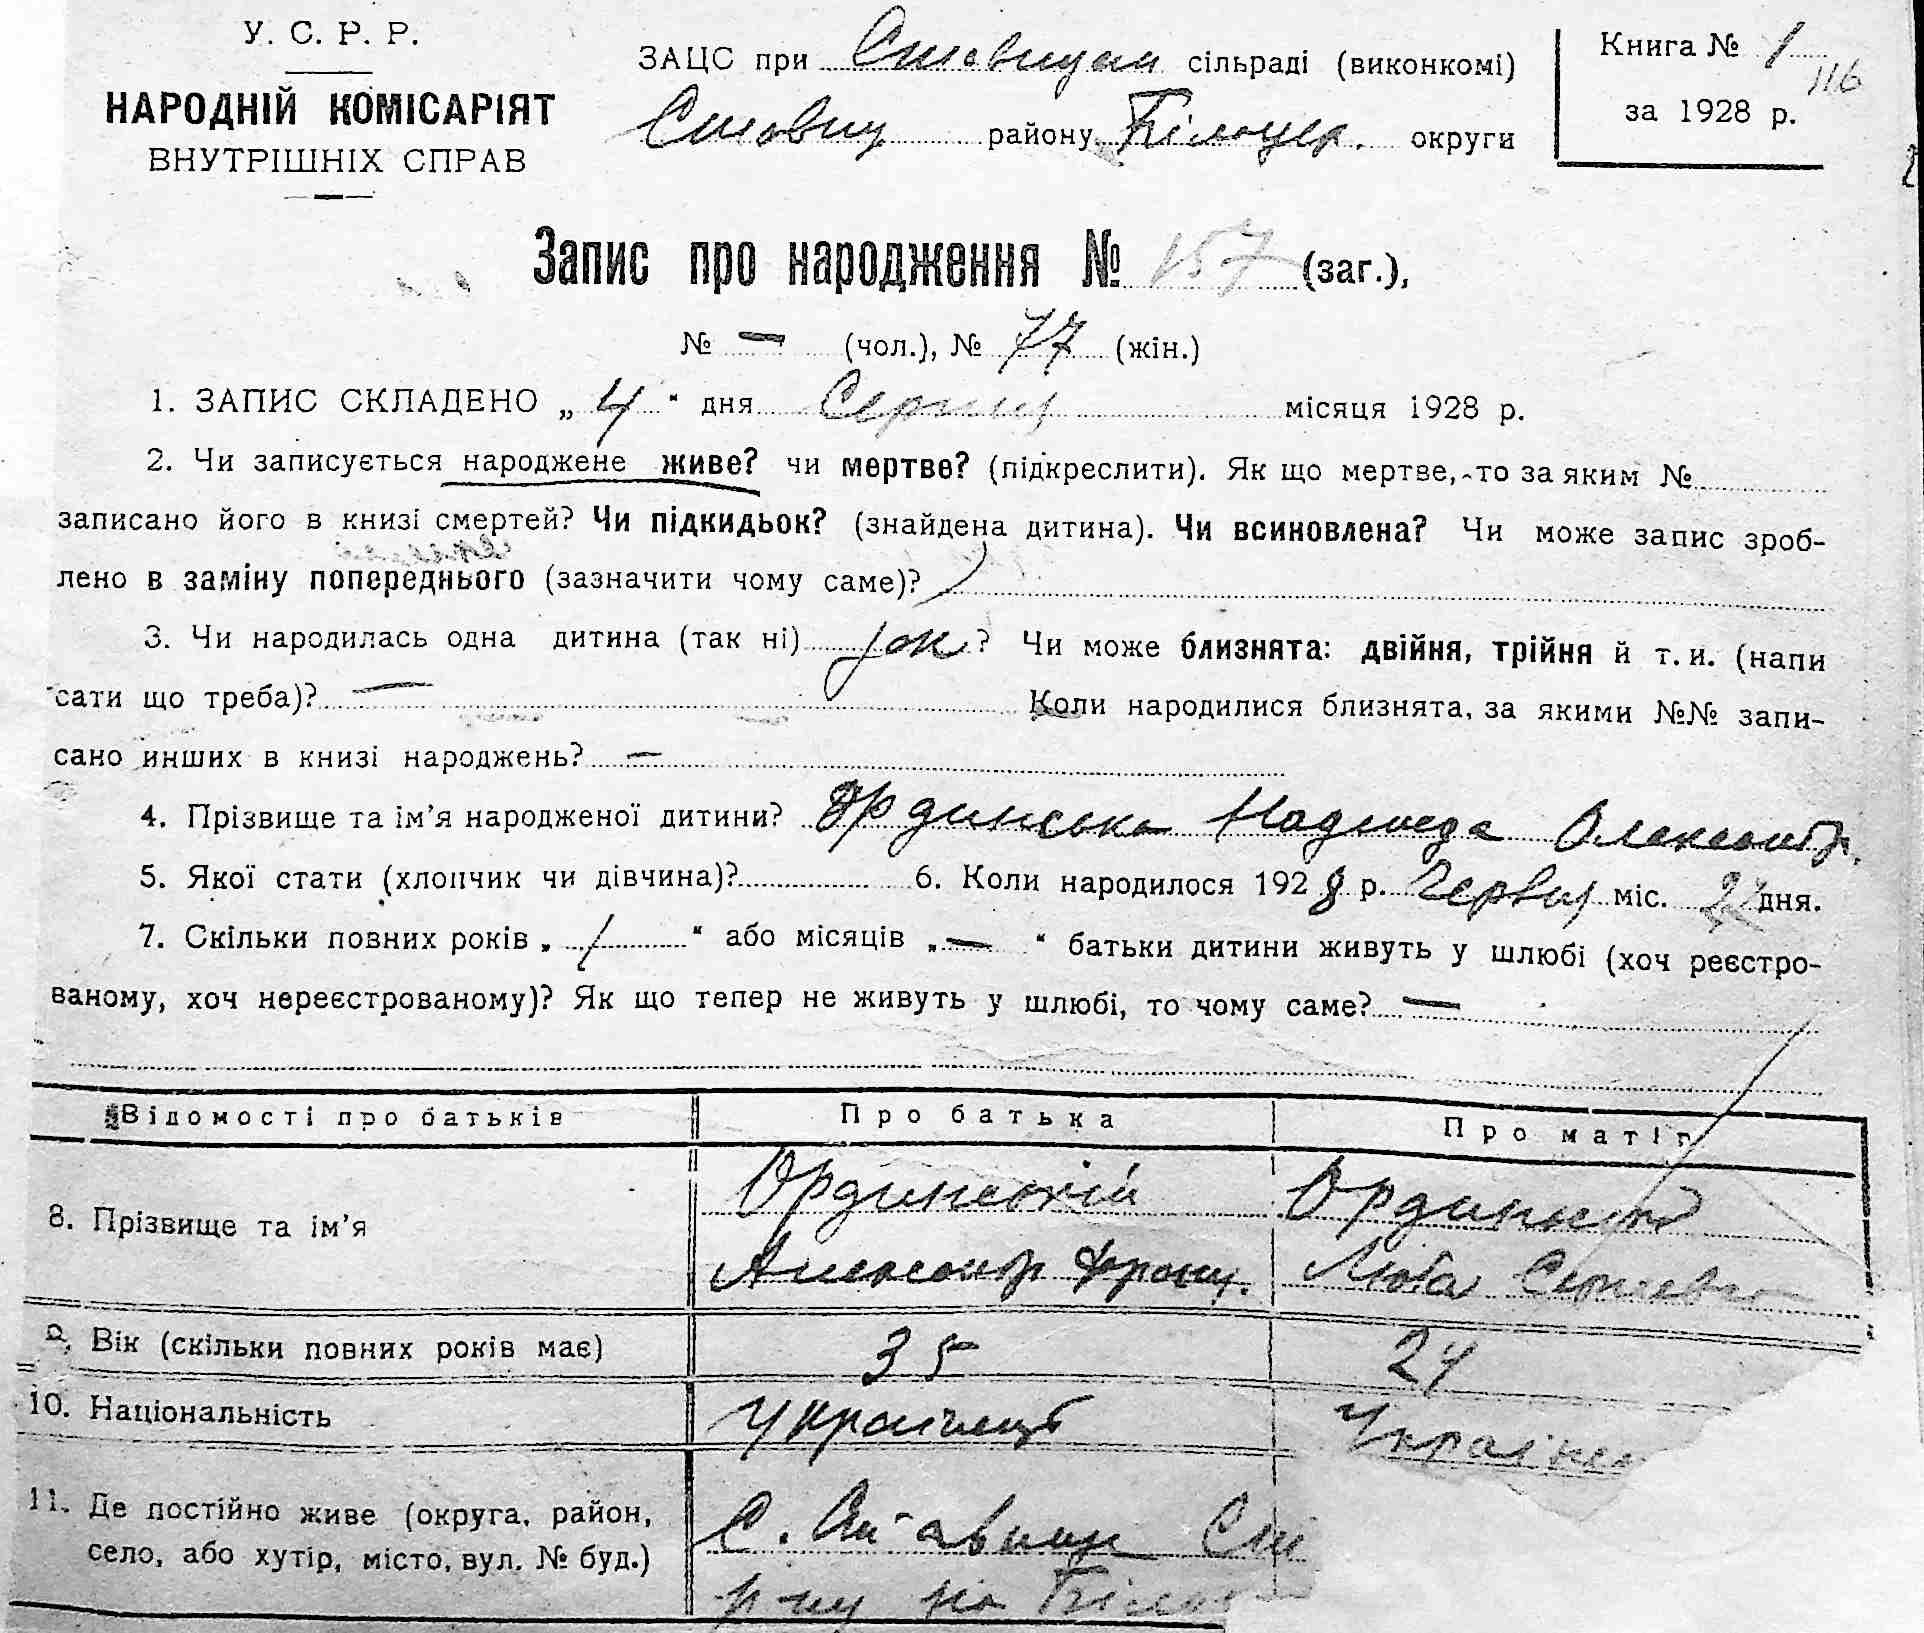 У. С. Р. Р.
НАРОДНІЙ КОМІСАРІЯТ
ВНУТРІШНІХ СПРАВ
ЗАЦС при Ставищан сільраді (виконкомі)
Ставищ району Білоцер. округи
Книга № 1
116
за 1928 р.
Запис про народження № 157 (заг.),
№ — (чол.), № 77 (жін.)
1. ЗАПИС СКЛАДЕНО „ 4 " дня Серпня місяця 1928 р.
2. Чи записується народжене живе? чи мертве? (підкреслити). Як що мертве, то за яким №
записано його в книзі смертей? Чи підкидьок? (знайдена дитина). Чи всиновлена? Чи може запис зроб-
лено в заміну попереднього (зазначити чому саме)?
3. Чи народилась одна дитина (так ні) так? Чи може близнята: двійня, трійня й т. и. (напи
сати що треба)? — Коли народилися близнята, за якими №№ запи-
сано инших в книзі народжень? —
4. Прізвище та ім'я народженої дитини? Ординська Надежда Олександр.
5. Якої стати (хлопчик чи дівчина)? 6. Коли народилося 1928 р. Червня міс. 22 дня.
7. Скільки повних років „ 1 " або місяців „ — " батьки дитини живуть у шлюбі (хоч реєстро-
ваному, хоч нереєстрованому)? Як що тепер не живуть у шлюбі, то чому саме? —
Відомості про батьків Про батька Про матір
8. Прізвище та ім'я Ординський Ординська
Александр Франц. Люба Сергієвна
9. Вік (скільки повних років має) 35 24
10. Національність Українець Українка
11. Де постійно живе (округа, район, С. Ставищ Ста
село, або хутір, місто, вул. № буд.) р-ну на Біло